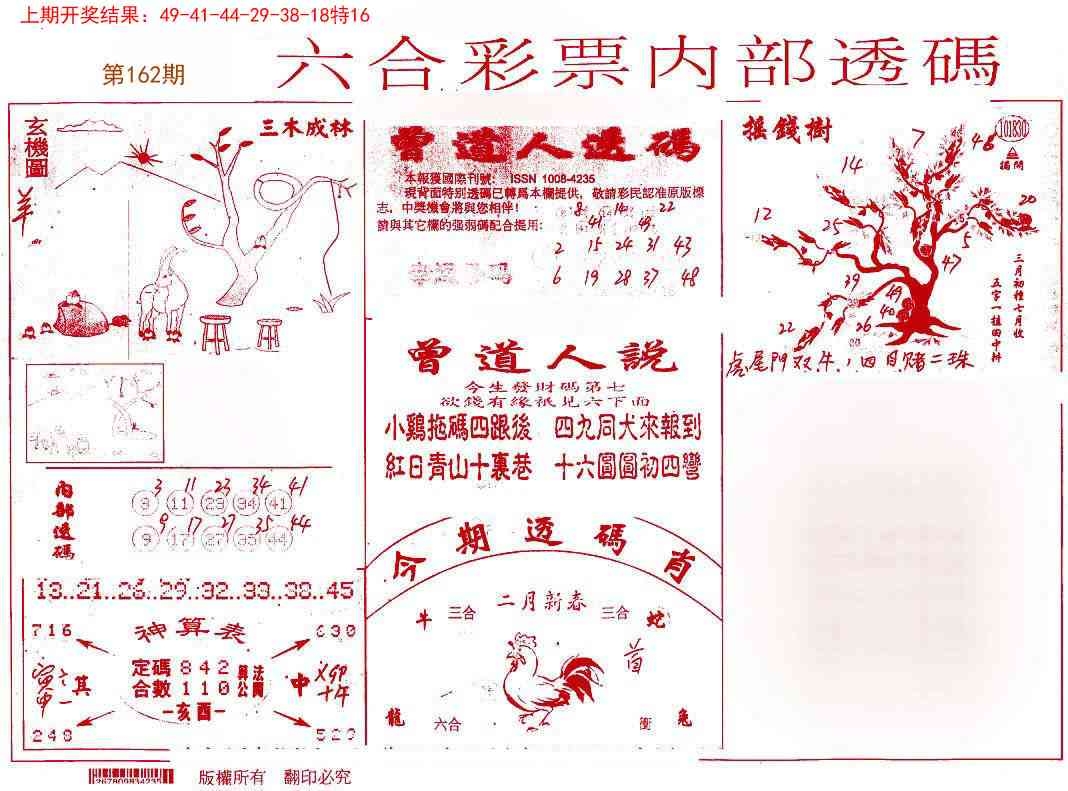 上期开奖结果：49-41-44-29-38-18特16
第162期
六合彩票内部透碼
玄機圖
羊
三木成林
曾道人透碼
本報獲國際刊號： ISSN 1008-4235
現背面特別透碼已轉爲本欄提供，敬請彩民認准原版標
志，中獎機會將與您相伴！
請與其它欄的强弱碼配合提用：
8 14 22
41 49
2 15 24 31 43
6 19 28 37 48
摇錢樹
101830
7
46
14
20
12
25
5
47
39
49
40
22
26
三月初種七月收
五字一植田中科
處尾門双牛，四目赌二珠
曾道人説
今生發財碼第七
欲錢有緣祇見六下面
小鷄拖碼四跟後 四九同犬來報到
紅日青山十裏巷 十六圓圓初四彎
内部透碼
3 11 23 34 41
3 11 23 34 41
9 17 27 35 44
9 17 27 35 44
13..21..26..29..32..33..38..45
716
神算表
630
定碼 842
合數 110
其
中
一亥酉一
248
529
今期透碼肖
二月新春
牛 三合
三合 蛇
龍 六合
衝 兔
版權所有 翻印必究